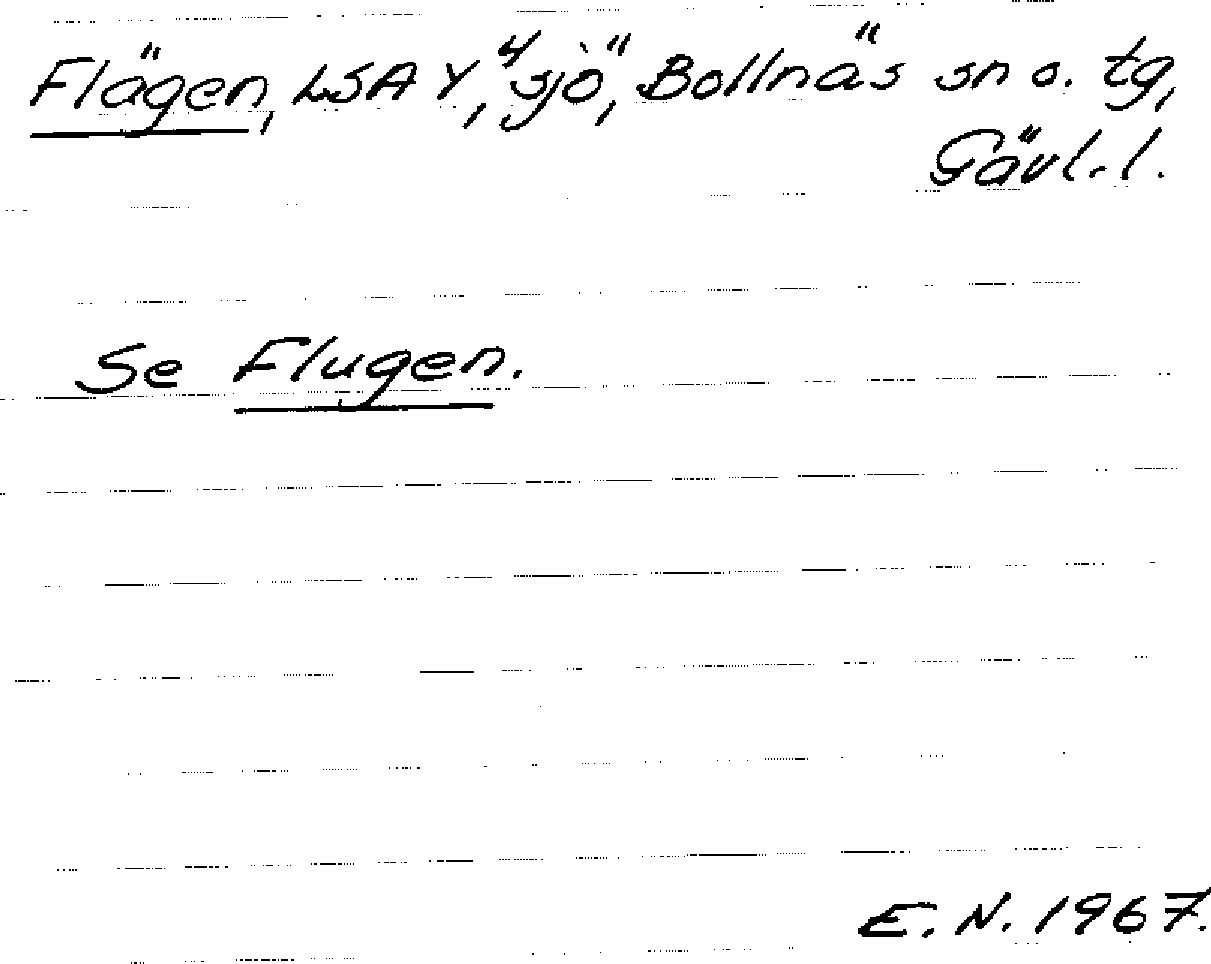 Flägen, LSA Y, "sjö", Bollnäs sn o. tg,
Gävl.l.
Se Flugen.
E.N. 1967.